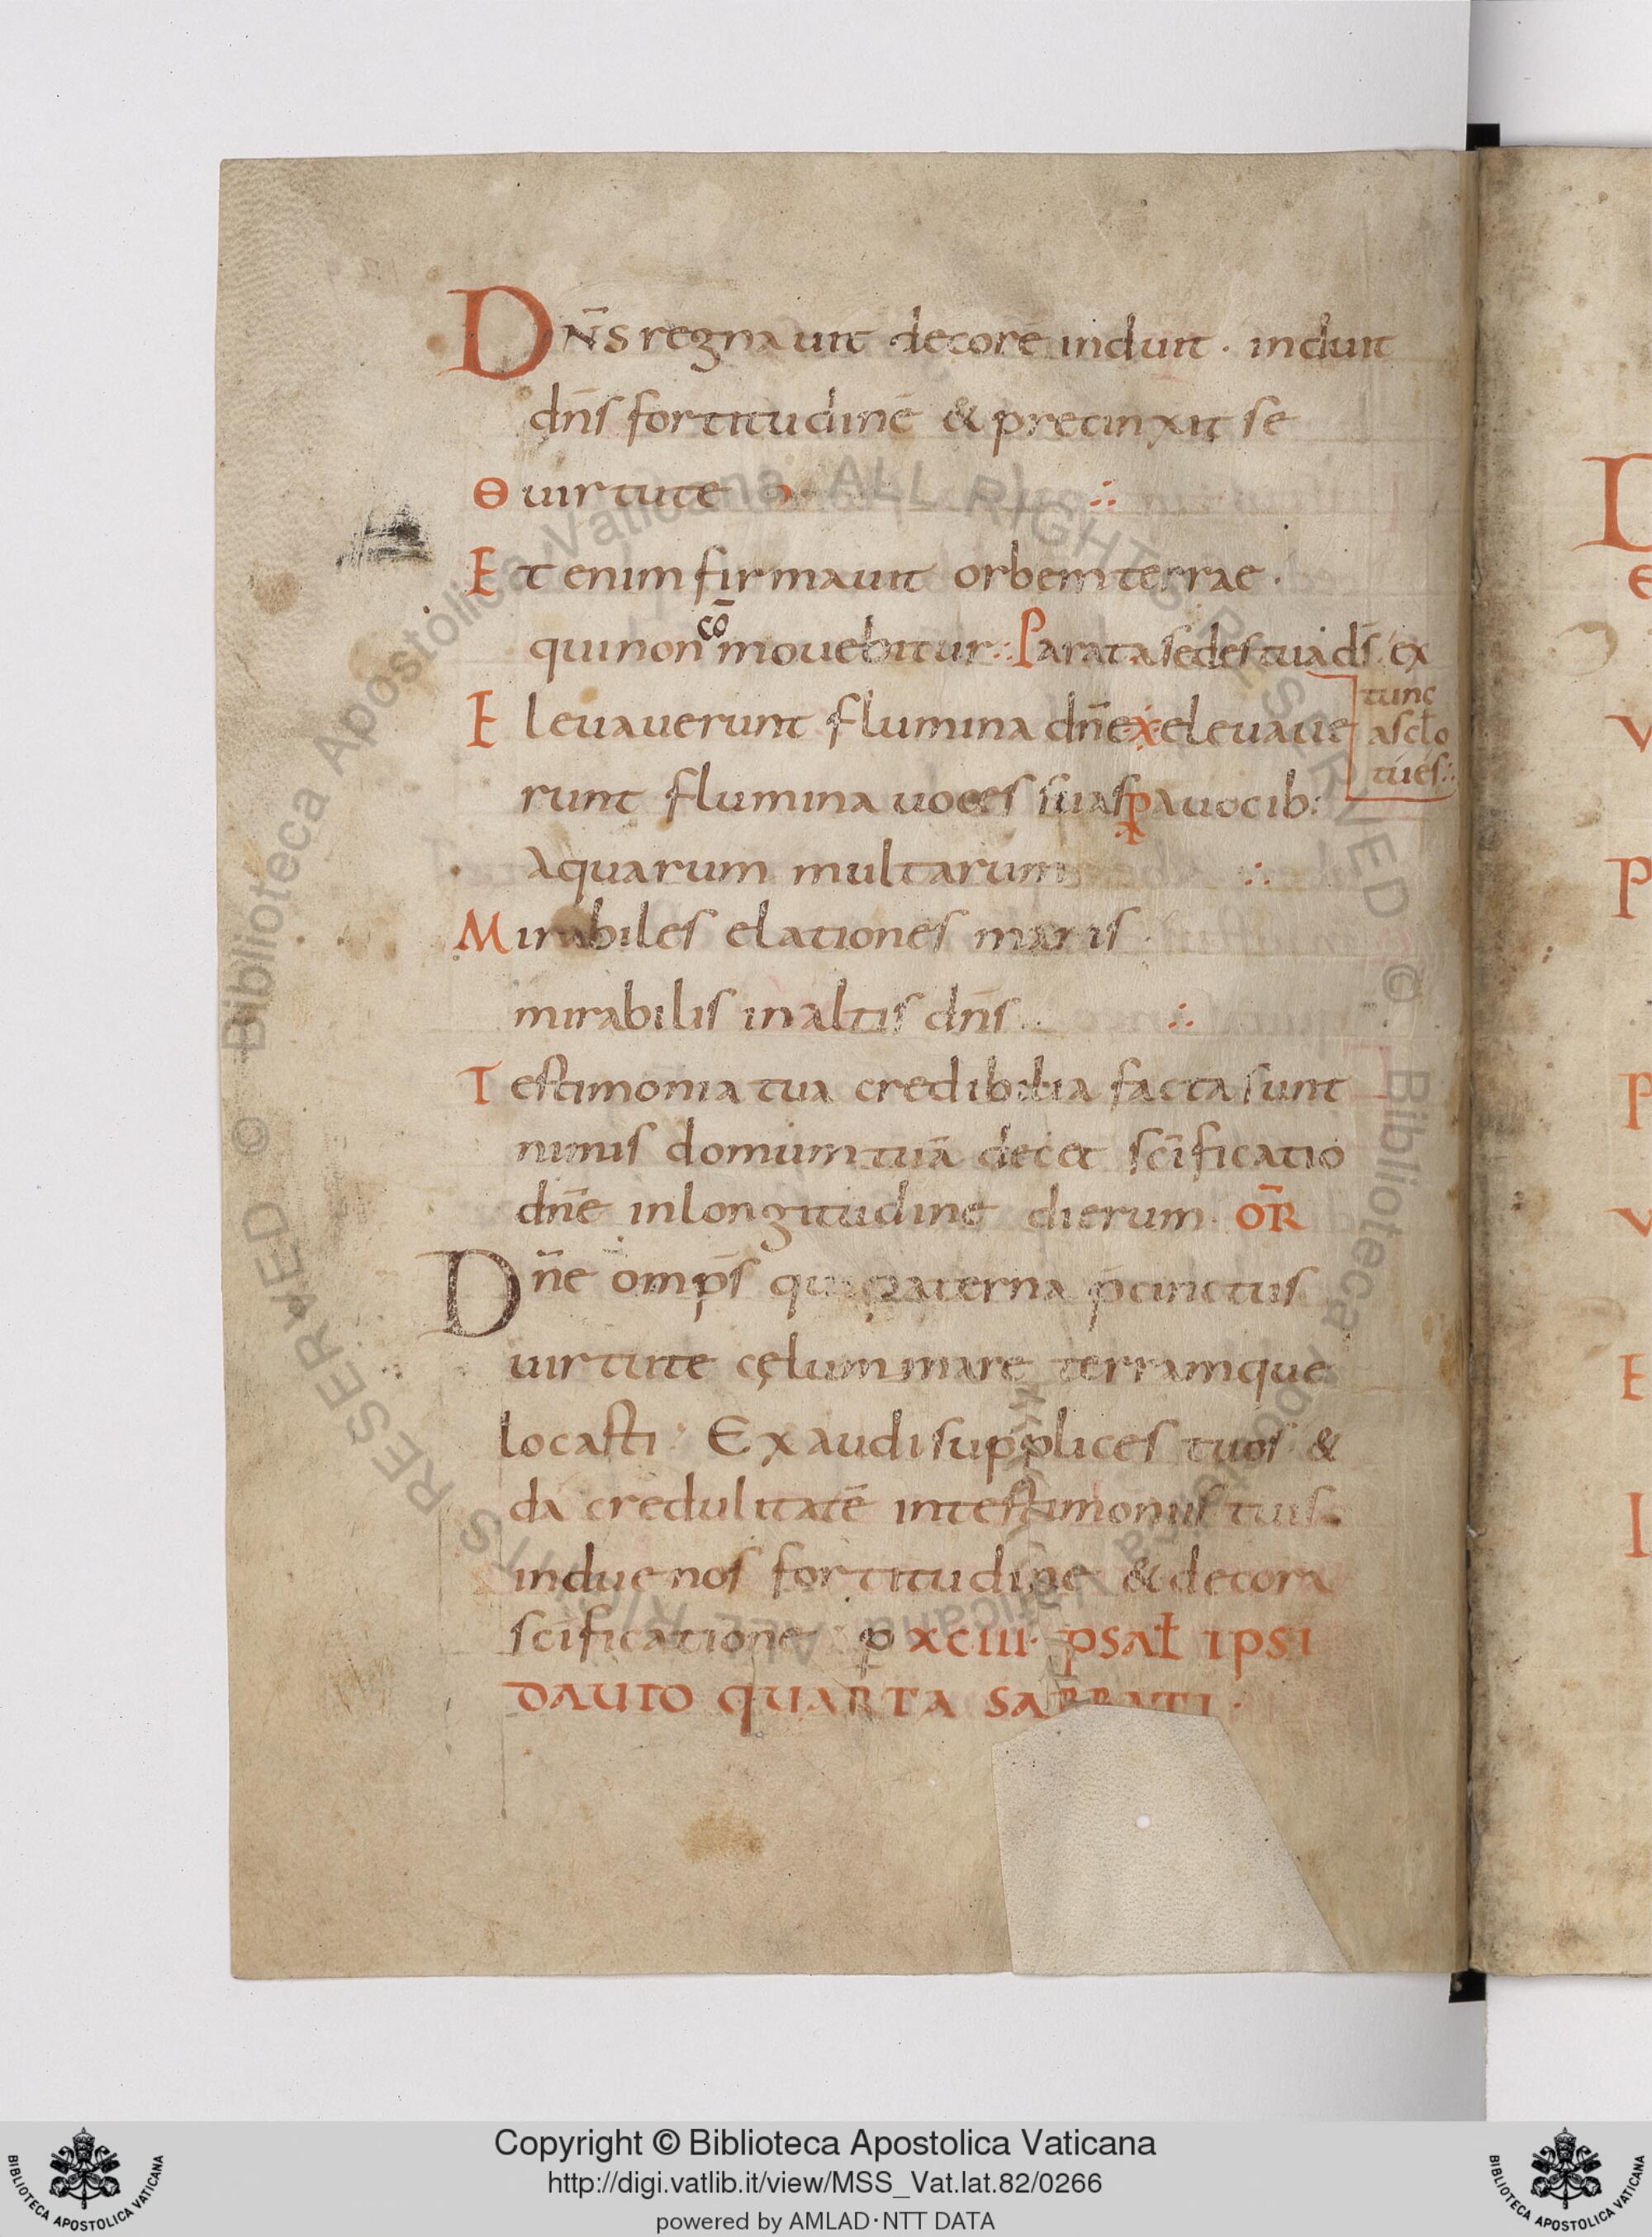 DN̄S regnauit decorē induit · induit
dn̄s fortitudinē & precinxit se
uirtute ∴
Et enim firmauit orbem terrae ·
qui non cō mouebitur ∴ Parata sedes tua ds̄ ex
tunc
a sclo
tu es ∴
Eleuauerunt flumina dn̄e eleuaue
runt flumina uoces suas a uocib:
aquarum multarum ∴
Mirabiles elationes maris ·
mirabilis in altis dn̄s ∴
Testimonia tua credibilia facta sunt
nimis domum tuā decet scīficatio
dn̄e in longitudine dierum · OR̄
Dn̄e omp̄s qui paterna p̄cinctus
uirtute cęlum mare terramque
locasti · Exaudi supplices tuos &
da credulitatē in testimoniis tuis
indue nos fortitudine & decora
scīficatione · p XCIII · PSAŁ IPSI
DAUID QUARTA SABBATI ·
© Biblioteca Apostolica Vaticana ALL RIGHTS RESERVED © Biblioteca Apostolica Vaticana ALL RIGHTS RESERVED
Copyright © Biblioteca Apostolica Vaticana
http://digi.vatlib.it/view/MSS_Vat.lat.82/0266
powered by AMLAD·NTT DATA
BIBLIOTECA APOSTOLICA VATICANA
BIBLIOTECA APOSTOLICA VATICANA